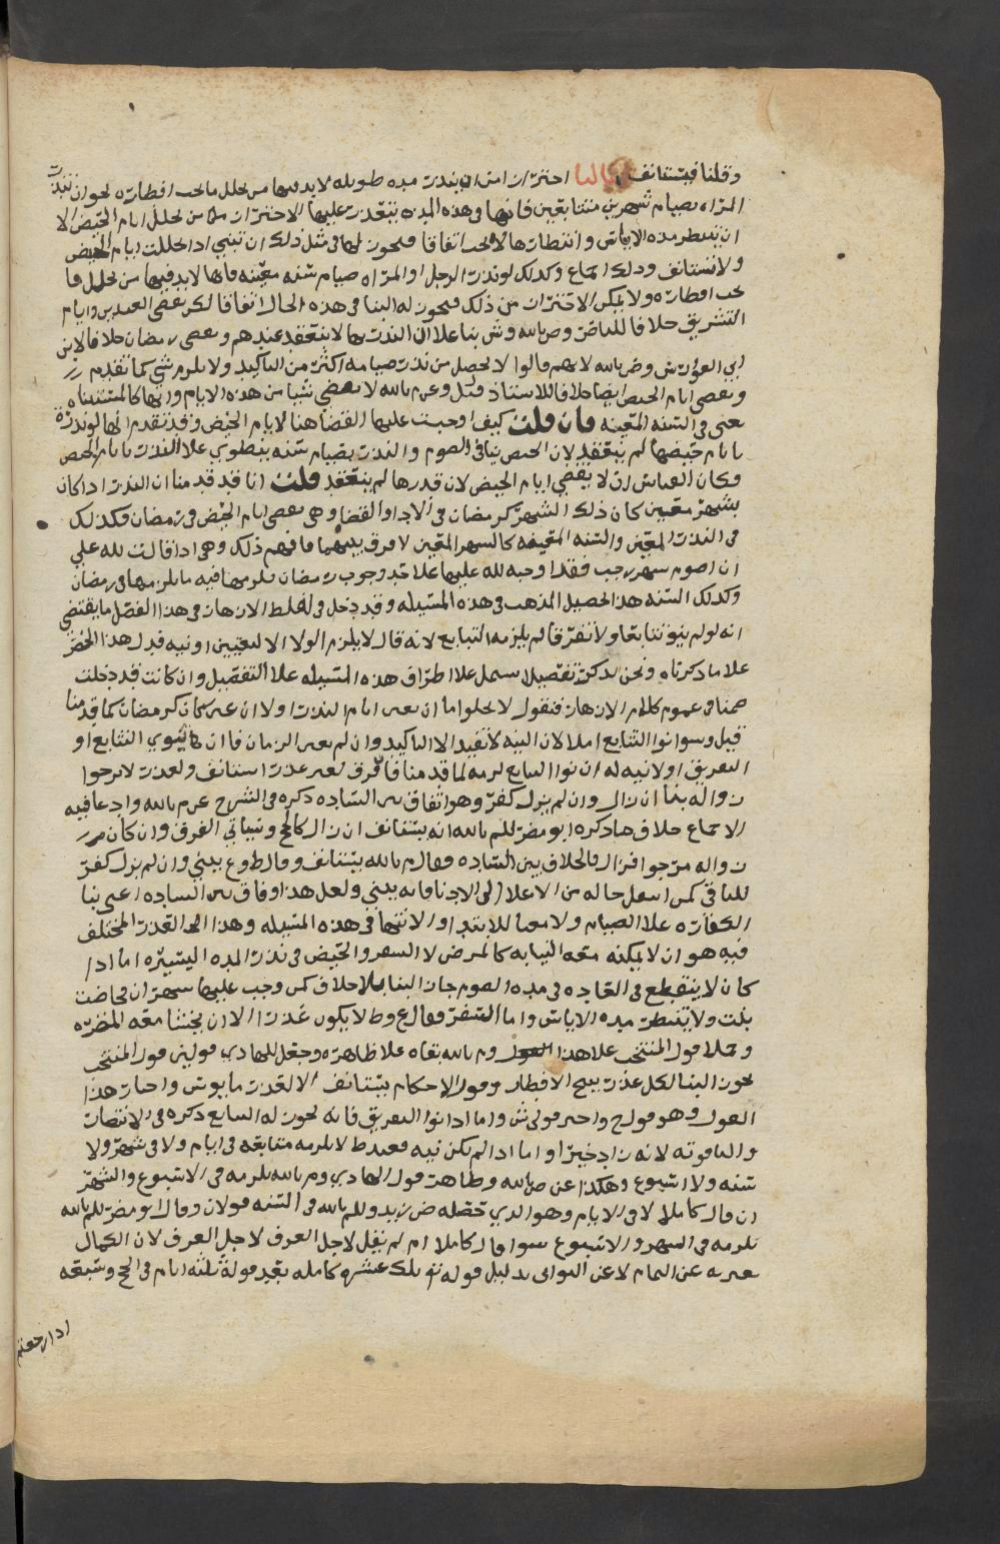 وقلنا فيستانف غالبا احتراز من ان ينذر مده طويله لا بد فيها من تخلل ما يجب افطاره نحو ان تنذر
المراه بصيام شهرين متتابعين فانها في هذه المده يتعذر عليها الاحتراز من تخلل ايام الحيض الا
ان تنتظر مده الاياس وانتظارها لا يجب اتفاقا فيجوز لها في مثل ذلك ان تبني اذا تخللت ايام الحيض
ولا تستانف وذلك اجماع وكذلك لو نذر الرجل او المراه صيام سنه معينه فانها لا بد فيها من تخلل ما
يجب افطاره ولا يمكن الاحتراز من ذلك فيجوز له البنا في هذه الحال اتفاقا لكن يقضي العيدين وايام
التشريق خلافا للناصر وص بالله وش بنا على ان النذر بها لا ينعقد عندهم ويقضي رمضان خلافا لابن
ابي الفوارس وض بالله لانهم قالوا لا يحصل من نذر صيامه اكثر من التاكيد ولا يلزم شي كما تقدم
ويقضي ايام الحيض ايضا خلافا للاستاذ وك وعن م بالله لا يقضي شيا من هذه الايام وانها كالمستثناه
يعني في السنه المعينه فان قلت كيف اوجبت عليها القضا هنا لايام الحيض وقد تقدم انها لو نذرت
بايام حيضها لم ينعقد لان الحيض ينافي الصوم والنذر بصيام سنه ينطوي على النذر بايام الحيض
فكان القياس ان لا يقضي ايام الحيض لان نذرها لم ينعقد قلت انا قد قدمنا ان النذر اذا كان
بشهر معين كان ذلك الشهر كرمضان في الادا والقضا وهي تقضي ايام الحيض في رمضان فكذلك
في النذر المعين والسنه المعينه كالشهر المعين لا فرق بينهما فافهم ذلك وهي اذا قالت لله علي
ان اصوم شهر رجب فقد اوجبه الله عليها على حد وجوب رمضان فلزمها فيه ما يلزمها في رمضان
وكذلك السنه هذا تحصيل المذهب في هذه المسيله وقد دخل في لفظ الازهار في هذا الفصل ما يقتضي
انه لو لم ينو تتابعا ولا تفرقا لم يلزمه التتابع لانه قال لا يلزم الولا الا لتعيين او نيه فدل هذا الحصر
على ما ذكرناه ونحن نذكر تفصيلا يشتمل على اطراف هذه المسيله على التفصيل وان كانت قد دخلت
ضمنا في عموم كلام الازهار فنقول لا يخلوا اما ان يعين ايام النذر او لا ان عين كان كرمضان كما قدمنا
قبل وسوا نوا التتابع ام لا لان النيه لا تفيد الا التاكيد وان لم يعين الزمان فاما ان ينوي التتابع او
التفريق او لا نيه له ان نوا التتابع لزمه لما قدمنا فان فرق لغير عذر استانف ولعذر لا يرجوا
زواله بنا ان زال وان لم يزل كفر وهو اتفاق بين الساده ذكره في الشرح عن م بالله وادعا فيه
الاجماع خلاف ما ذكره ابو مضر للم بالله انه يستانف ان زال كالحج وسياتي الفرق وان كان
زواله مرجوا فزال فالخلاف بين الساده فقال م بالله يستانف وقال ط وع يبني وان لم يزل كفر
للباقي كمن انتقل حاله من الاعلا الى الادنا فانه يبني ولعل هذا وفاق بين الساده اعني بنا
الكفاره على الصيام ولا معنا للابتدا والانتها في هذه المسيله وهذا الحد العذر المختلف
فيه هو ان لا يمكنه معه النيابه كالمرض لا السفر والحيض في نذر المده اليسيره اما اذا
كان لا ينقطع في العاده في مده الصوم جاز البنا بلا خلاف كمن وجب عليها شهران فحاضت
بنت ولا تنتظر مده الاياس واما السفر فقال ع وط لا يكون عذرا الا ان يخشا معه المضره
وحملا قول المنتخب على هذا وم بالله بقاه على ظاهره وجعل للهادي قولين قول المنتخب
يجوز البنا لكل عذر يبيح الافطار وقول الاحكام يستانف الا لعذر مايوس واختار هذا
القول وهو قول ح واخير قولي ش واما اذا نوا التفريق فانه يجوز له التتابع ذكره في الانتصار
والياقوته لانه زاد خيرا واما اذا لم يكن نيه فعند ط لا يلزمه متابعه في ايام ولا في شهر ولا
سنه ولا اسبوع وهكذا عن ص بالله وظاهر قول الهادي وم بالله يلزمه في الاسبوع والشهر
ان قال كاملا لا في الايام وهو الذي حصله ض زيد وللم بالله في السنه قولان وقال ابو مضر للم بالله
يلزمه في الشهر والاسبوع سوا قال كاملا ام لم يقل لاجل العرف لاجل العرف لان الكمال
يعبر به عن التمام لا عن التوالي بدليل قوله تلك عشره كامله بعد قوله ثلثه ايام في الحج وسبعه
اذا رجعتم